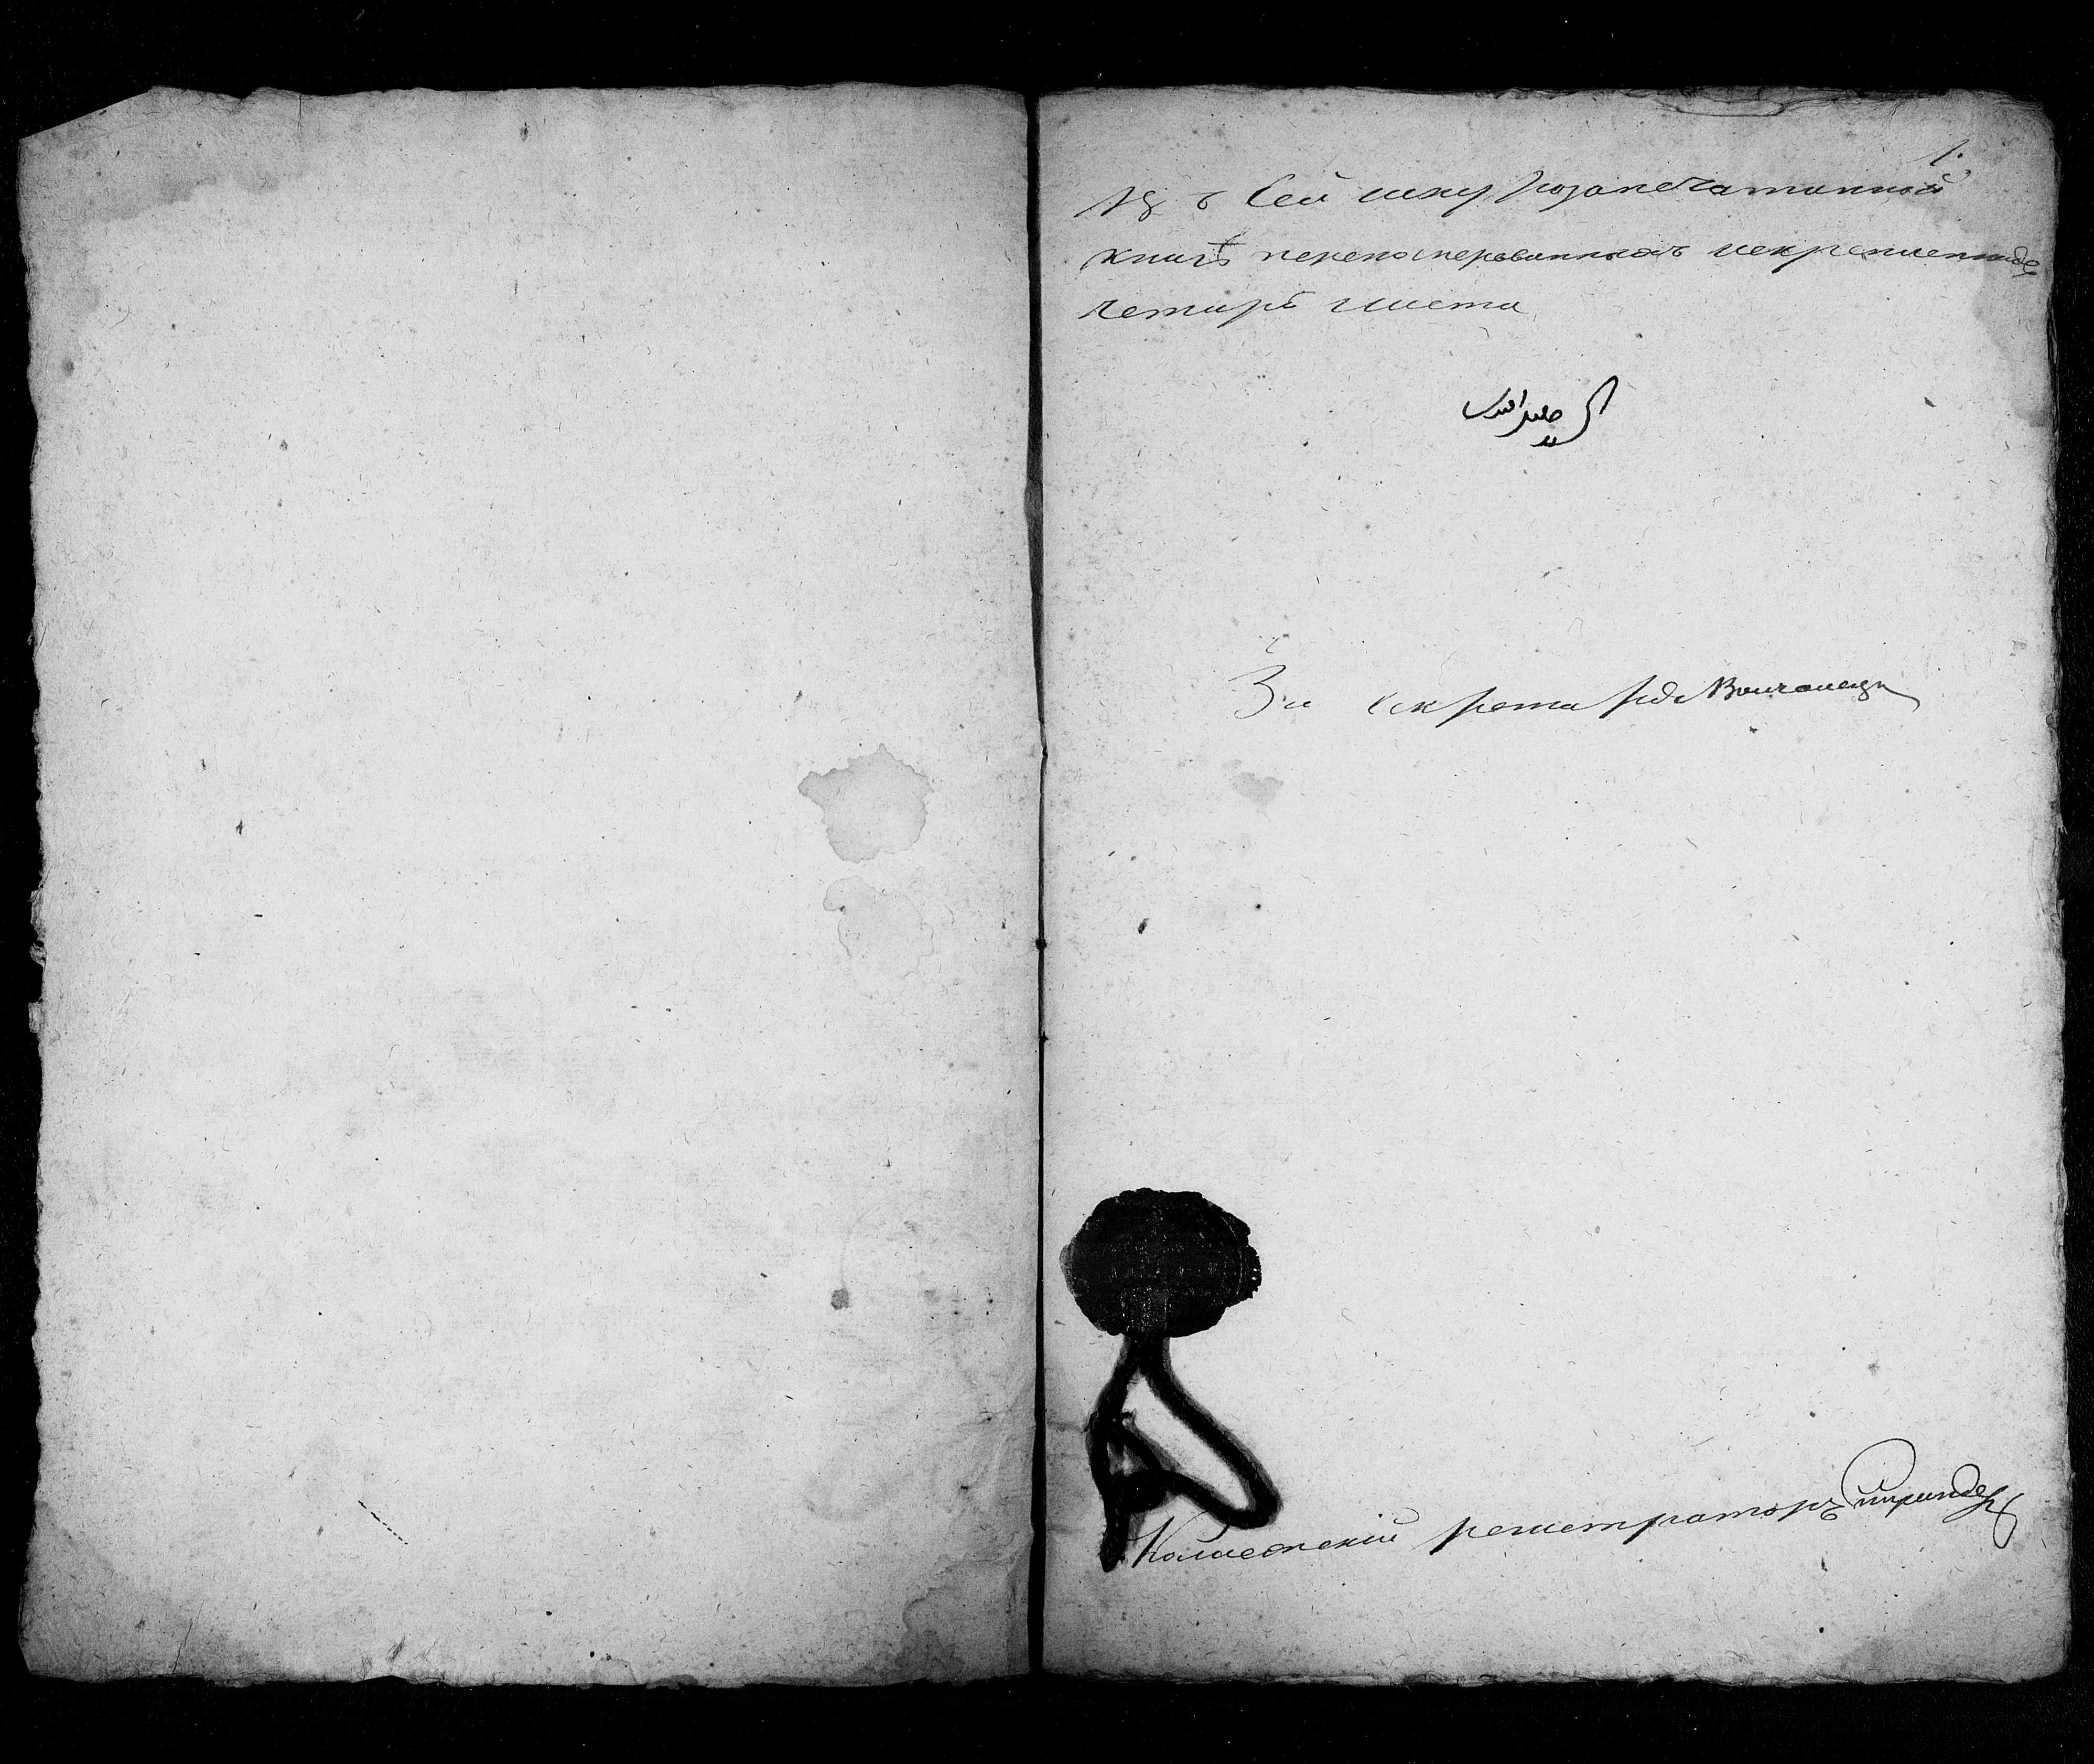 1.
Въ сей шнурозапечатанной
книгѣ перенумерованныхъ искрепленныхъ
четыре листа
За секретаря
Коллежскій регистраторъ